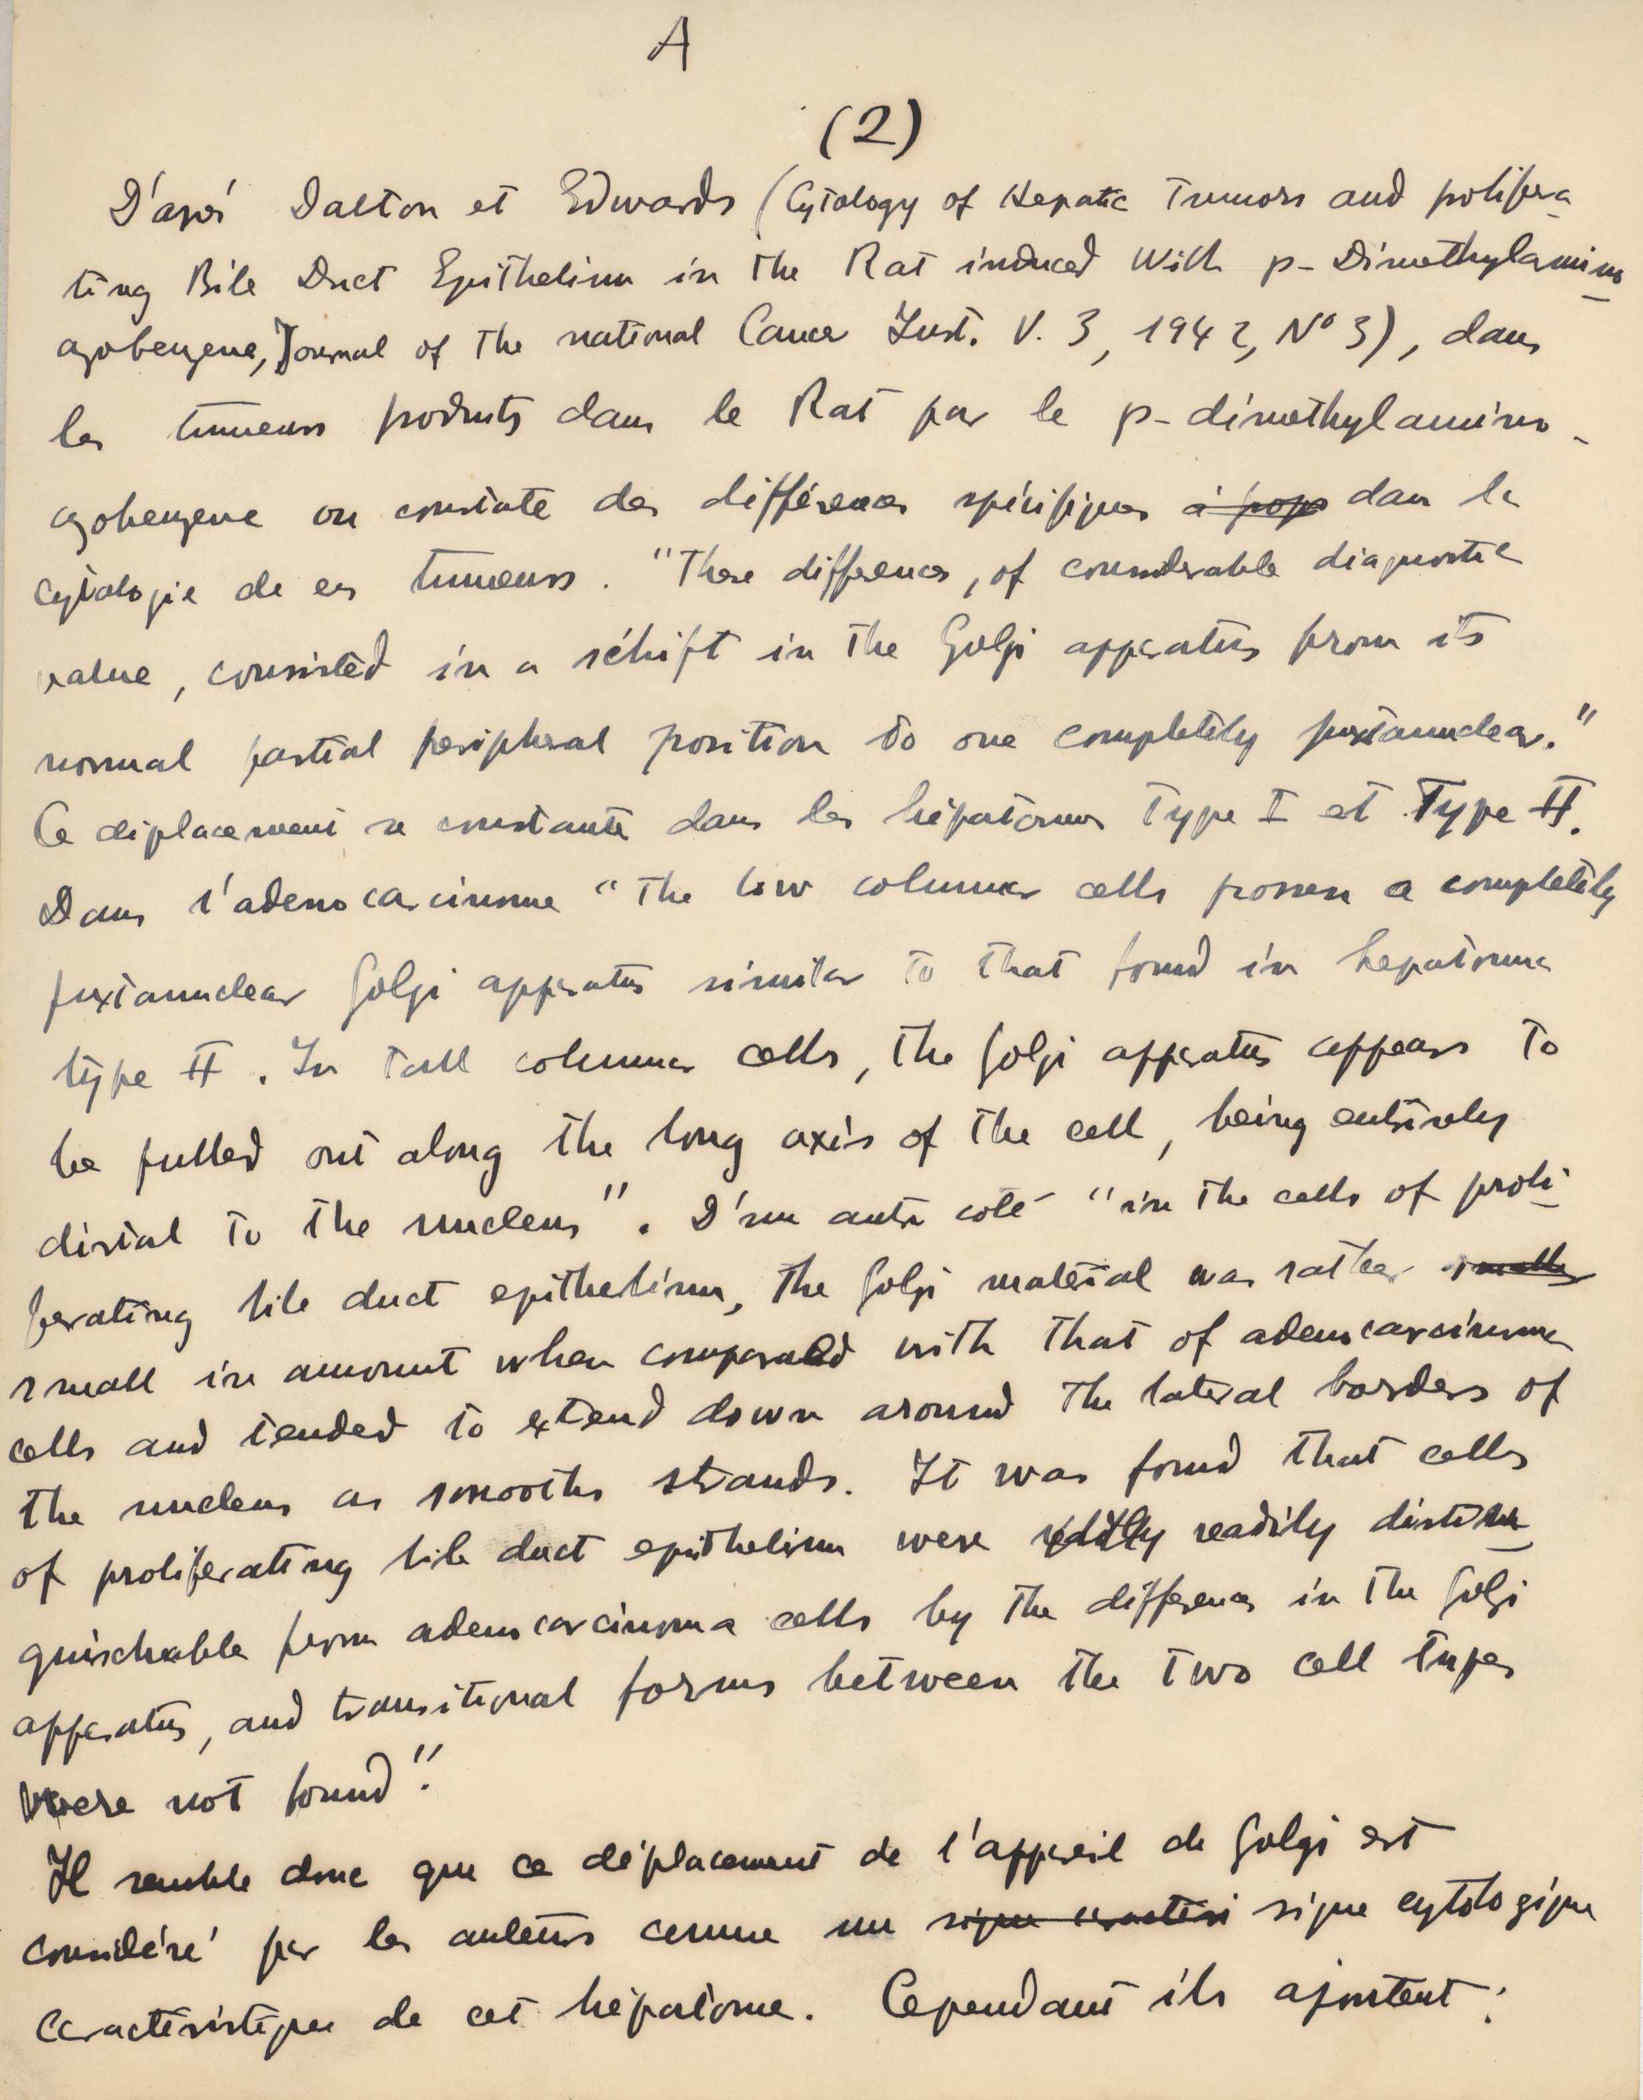 A
(2)
D'après Dalton et Edwards (Cytology of Hepatic Tumors and prolifera-
ting Bile Duct Epithelium in the Rat induced With p-Dimethylamino-
azobenzene, Journal of the national Cancer Inst. V. 3, 1942, N° 3), dans
les tumeurs produits dans le Rat par le p-dimethylamino-
azobenzene on constate des différences spécifiques à prop dans la
cytologie de ces tumeurs. "These differences, of considerable diagnostic
value, consisted in a schift in the Golgi apparatus from its
normal partial peripheral position to one completely juxtanuclear."
Ce déplacement se constante dans les hépatomes Type I et Type II.
Dans l'adenocarcinome "The low columnar cells possess a completely
juxtanuclear Golgi apparatus similar to that found in hepatoma
type II. In tall columnar cells, the Golgi apparatus appears to
be pulled out along the long axis of the cell, being entirely
distal to the nucleus". D'un autre coté "in the cells of proli-
ferating bile duct epithelium, the Golgi material was rather smaller
small in amount when compared with that of adenocarcinoma
cells and tended to extend down around the lateral borders of
the nucleus as smooths strands. It was found that cells
of proliferating bile duct epithelium were readily distin-
guischable from adenocarcinoma cells by the differences in the Golgi
apparatus, and transitional forms between the two cell types
were not found".
Il semble donc que ce déplacement de l'appareil de Golgi est
considéré par les auteurs comme un signe caractéri signe cytologique
caracteristique de cet hépatome. Cependant ils ajoutent: